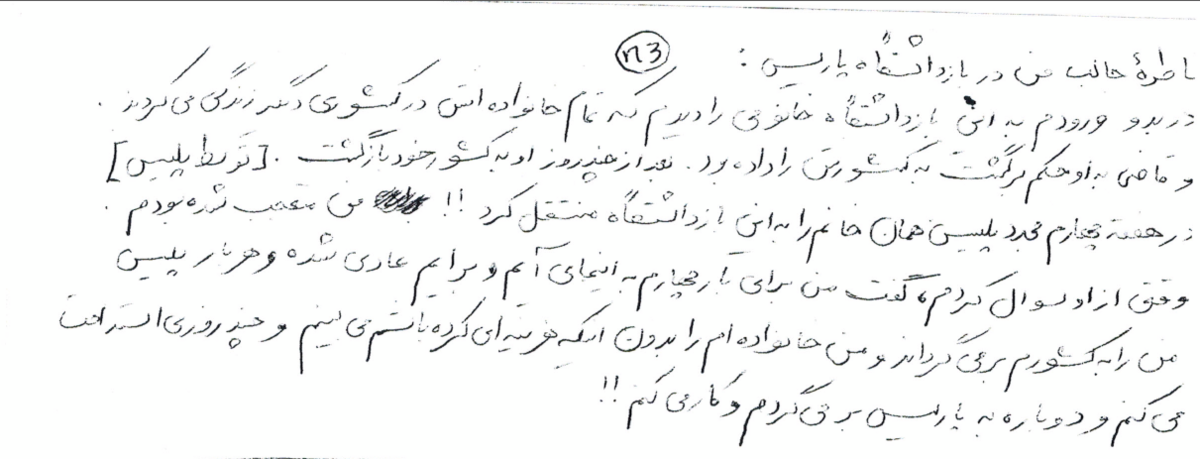 n3
خاطرهٔ جالب من در بازداشتگاه پاریس :
در بدو ورودم به این بازداشتگاه خانومی را دیدم که تمام خانواده اش در کشوری دگر زندگی می کردند .
و قاضی به او حکم برگشت به کشورش را داده بود . بعد از چند روز او به کشور خود بازگشت . [توسط پلیس]
در هفته چهارم مجدد پلیس همان خانم را به این بازداشتگاه منتقل کرد !! من متعجب شده بودم .
وقتی از او سوال کردم ، گفت من برای بار چهارم به اینجا می آیم و برایم عادی شده و هر بار پلیس
من را به کشورم بر می گرداند و من خانواده ام را بدون اینکه هزینه ای کرده باشم می بینم و چند روزی استراحت
می کنم و دوباره به پاریس بر می گردم و کار می کنم !!